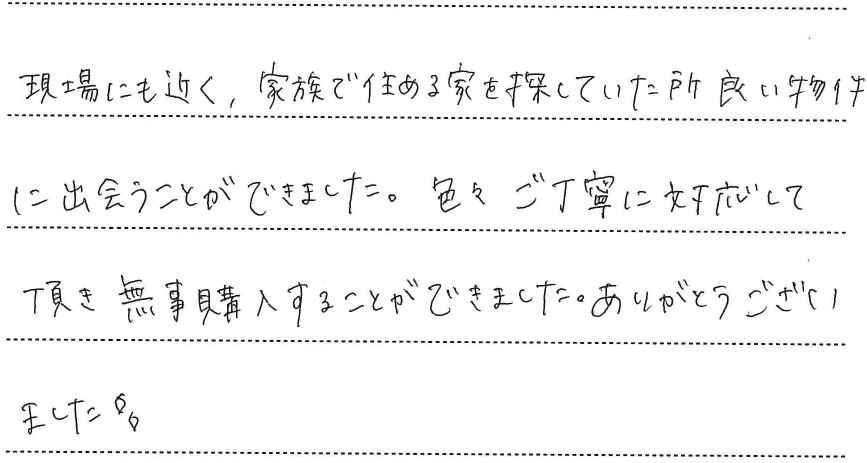 現場にも近く,家族で住める家を探していた所 良い物件
に出会うことができました。色々 ご丁寧に対応して
頂き 無事購入することができました。ありがとうござい
ました